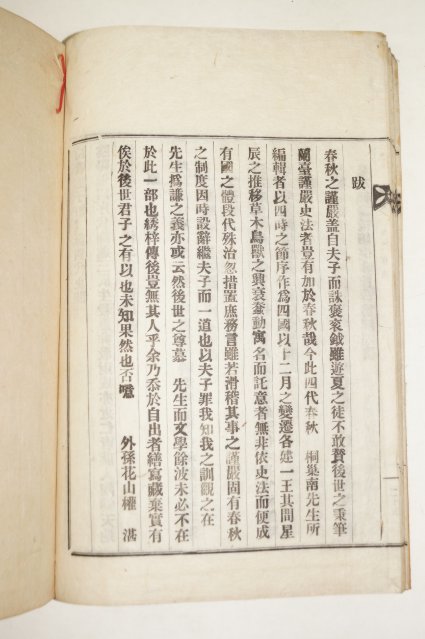 跋
春秋之謹嚴盖自夫子而誅褒衮鉞雖遊夏之徒不敢賛後世之秉筆
蘭臺謹嚴史法者豈有加於春秋哉今此四代春秋 桐巢南先生所
編輯者以四時之節序作爲四國以十二月之變遷各建一王其間星
辰之推移草木鳥獸之興衰蠢動寓名而託意者無非依史法而便成
有國之體段代殊治忽措置庶務言雖若滑稽其事之謹嚴固有春秋
之制度因時設辭繼夫子而一道也以夫子罪我知我之訓觀之在
先生爲謙之義亦或云然後世之尊慕 先生而文學餘波未必不在
於此一部也綉梓傳後豈無其人乎余乃忝於自出者繕寫藏棄實有
俟於後世君子之有以也未知果然也否噫 外孫花山權 湛